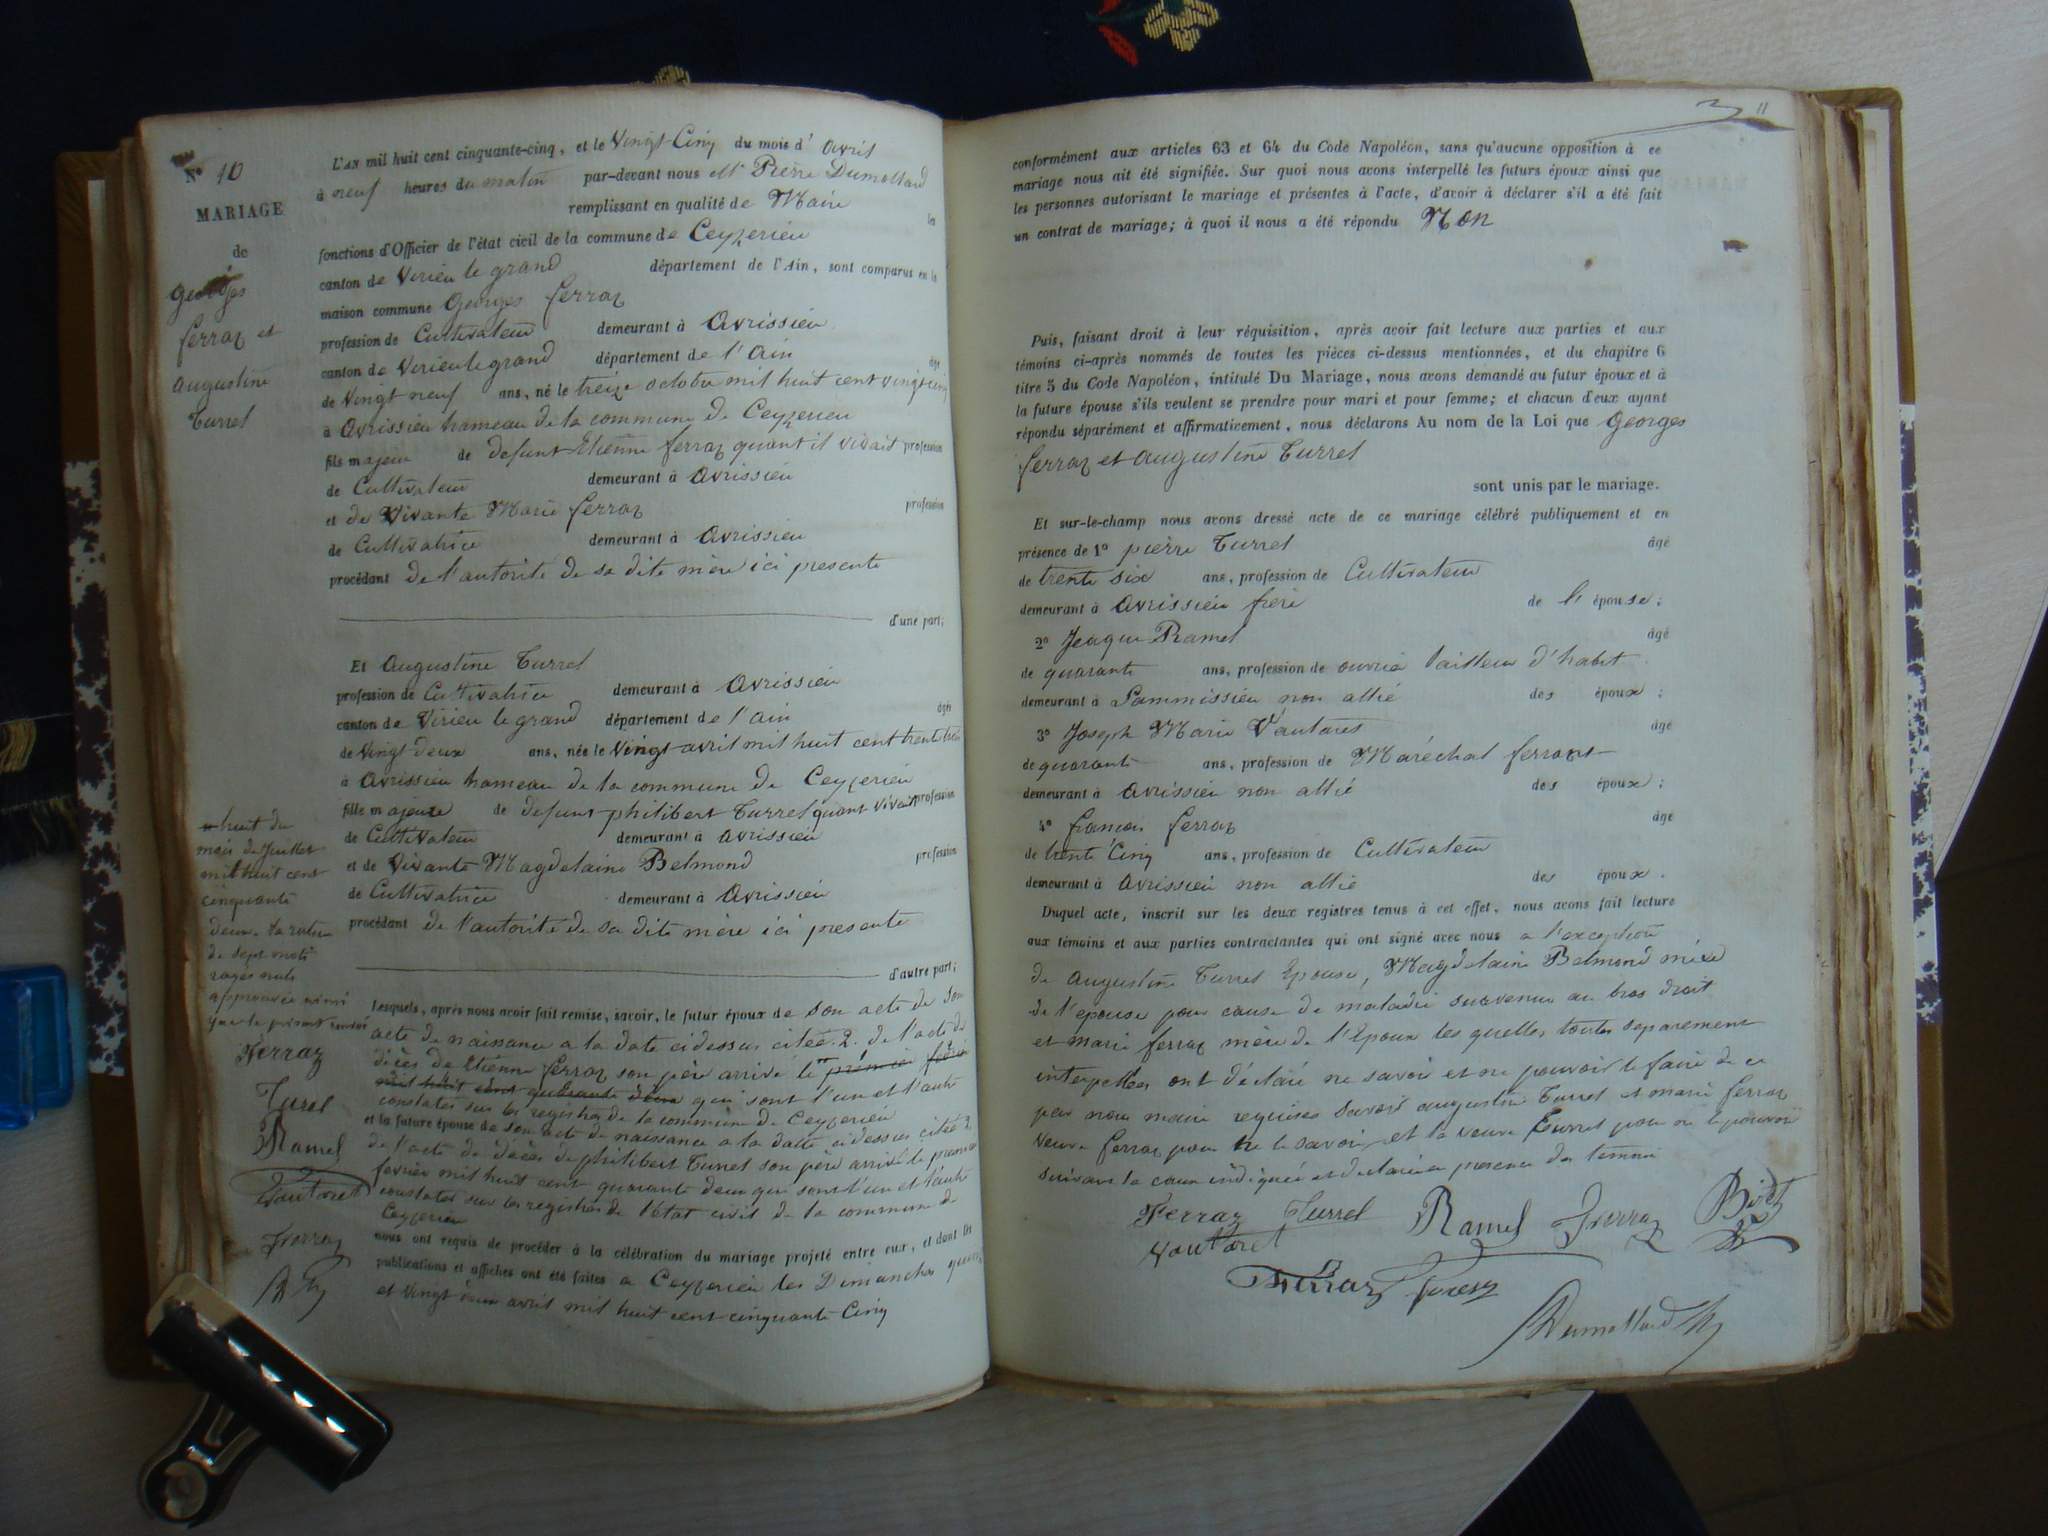 N° 10
MARIAGE
de
georges
ferraz et
augustine
Turrel
L'AN mil huit cent cinquante-cinq, et le Vingt Cinq du mois d' avril
à neuf heures du matin par-devant nous Mr Pierre Dumollard
remplissant en qualité de Maire les
fonctions d'Officier de l'état civil de la commune de Ceyzerieu
canton de Virieu le grand département de l'Ain, sont comparus en la
maison commune Georges ferraz
profession de Cultivateur demeurant à Avrissieu
canton de Virieu le grand département de l'Ain âgé
de Vingt neuf ans, né le treize octobre mil huit cent vingt cinq
à Avrissieu hameau de la commune de Ceyzerieu
fils majeur de defunt Etienne ferraz quant il vivait profession
de Cultivateur demeurant à avrissieu
et de Vivante Marie ferraz profession
de Cultivatrice demeurant à avrissieu
procédant de l'autorité de sa dite mère ici presente
d'une part;
Et Augustine Turrel
profession de Cultivatrice demeurant à Avrissieu
canton de Virieu le grand département de l'ain âgée
de Vingt-deux ans, née le Vingt avril mil huit cent trente trois
à Avrissieu hameau de la commune de Ceyzerieu
fille majeure de defunt philibert Turrel quant vivait profession
de Cultivateur demeurant à avrissieu
et de Vivante Magdelaine Belmond profession
de Cultivatrice demeurant à Avrissieu
procédant de l'autorité de sa dite mère ici presente
d'autre part;
Lesquels, après nous avoir fait remise, savoir, le futur époux de son acte de son
acte de naissance a la date cidessus citée. 2. de l'acte de
décès de Etienne ferraz son père arrivé le premier février
mil huit cent quarante deux qui sont l'un et l'autre
constatés sur les registres de la commune de Ceyzerieu
et la future épouse de son acte de naissance a la datte cidessus citée 2.
de l'acte de décès de philibert Turrel son père arrivé le premier
fevrier mil huit cent quarante deux qui sont l'un et l'autre
constatés sur les registres de l'état civil de la commune de
Ceyzerieu
nous ont requis de procéder à la célébration du mariage projeté entre eux, et dont les
publications et affiches ont été faites a Ceyzerieu les Dimanches quinze
et vingt deux avril mil huit cent cinquante Cinq
huit du
mois de Juillet
mil huit cent
cinquante
deux. la rature
de sept mots
rayés nuls
approuvée ainsi
que le présent renvoi
Ferraz
Turel
Ramel
Vautaret
Ferraz
11
conformément aux articles 63 et 64 du Code Napoléon, sans qu'aucune opposition à ce
mariage nous ait été signifiée. Sur quoi nous avons interpellé les futurs époux ainsi que
les personnes autorisant le mariage et présentes à l'acte, d'avoir à déclarer s'il a été fait
un contrat de mariage; à quoi il nous a été répondu Non
Puis, faisant droit à leur réquisition, après avoir fait lecture aux parties et aux
témoins ci-après nommés de toutes les pièces ci-dessus mentionnées, et du chapitre 6
titre 5 du Code Napoléon, intitulé Du Mariage, nous avons demandé au futur époux et à
la future épouse s'ils veulent se prendre pour mari et pour femme; et chacun d'eux ayant
répondu séparément et affirmativement, nous déclarons Au nom de la Loi que Georges
ferraz et augustine Turrel
sont unis par le mariage.
Et sur-le-champ nous avons dressé acte de ce mariage célébré publiquement et en
présence de 1° pierre Turrel âgé
de trente six ans, profession de Cultivateur
demeurant à Avrissieu frère de l' épouse;
2° Jeaque Ramel âgé
de quarante ans, profession de ouvrié tailleur d'habit
demeurant à Pammissieu non allié des époux;
3° Joseph Marie Vautaret âgé
de quarante ans, profession de Maréchal ferrant
demeurant à Avrissieu non allié des époux;
4° francois ferraz âgé
de trente Cinq ans, profession de Cultivateur
demeurant à Avrissieu non allié des époux.
Duquel acte, inscrit sur les deux registres tenus à cet effet, nous avons fait lecture
aux témoins et aux parties contractantes qui ont signé avec nous a l'exception
de augustine Turrel Epouse, Magdelaine Belmond mère
de l'epouse pour cause de maladie survenue au bras droit
et marie ferraz mère de l'Epoux les quelles toutes separement
interpellées ont déclaré ne savoir et ne pouvoir le faire de ce
par nous maire requises savoir augustine Turrel et marie ferraz
veuve ferraz pour ne le savoir et la veuve Turrel pour ne le pouvoir
suivant la cause indiquée et déclarée en presence des temoins
Ferraz Turrel Ramel Ferraz Bidet
Vautaret
Ferraz
Dumollard